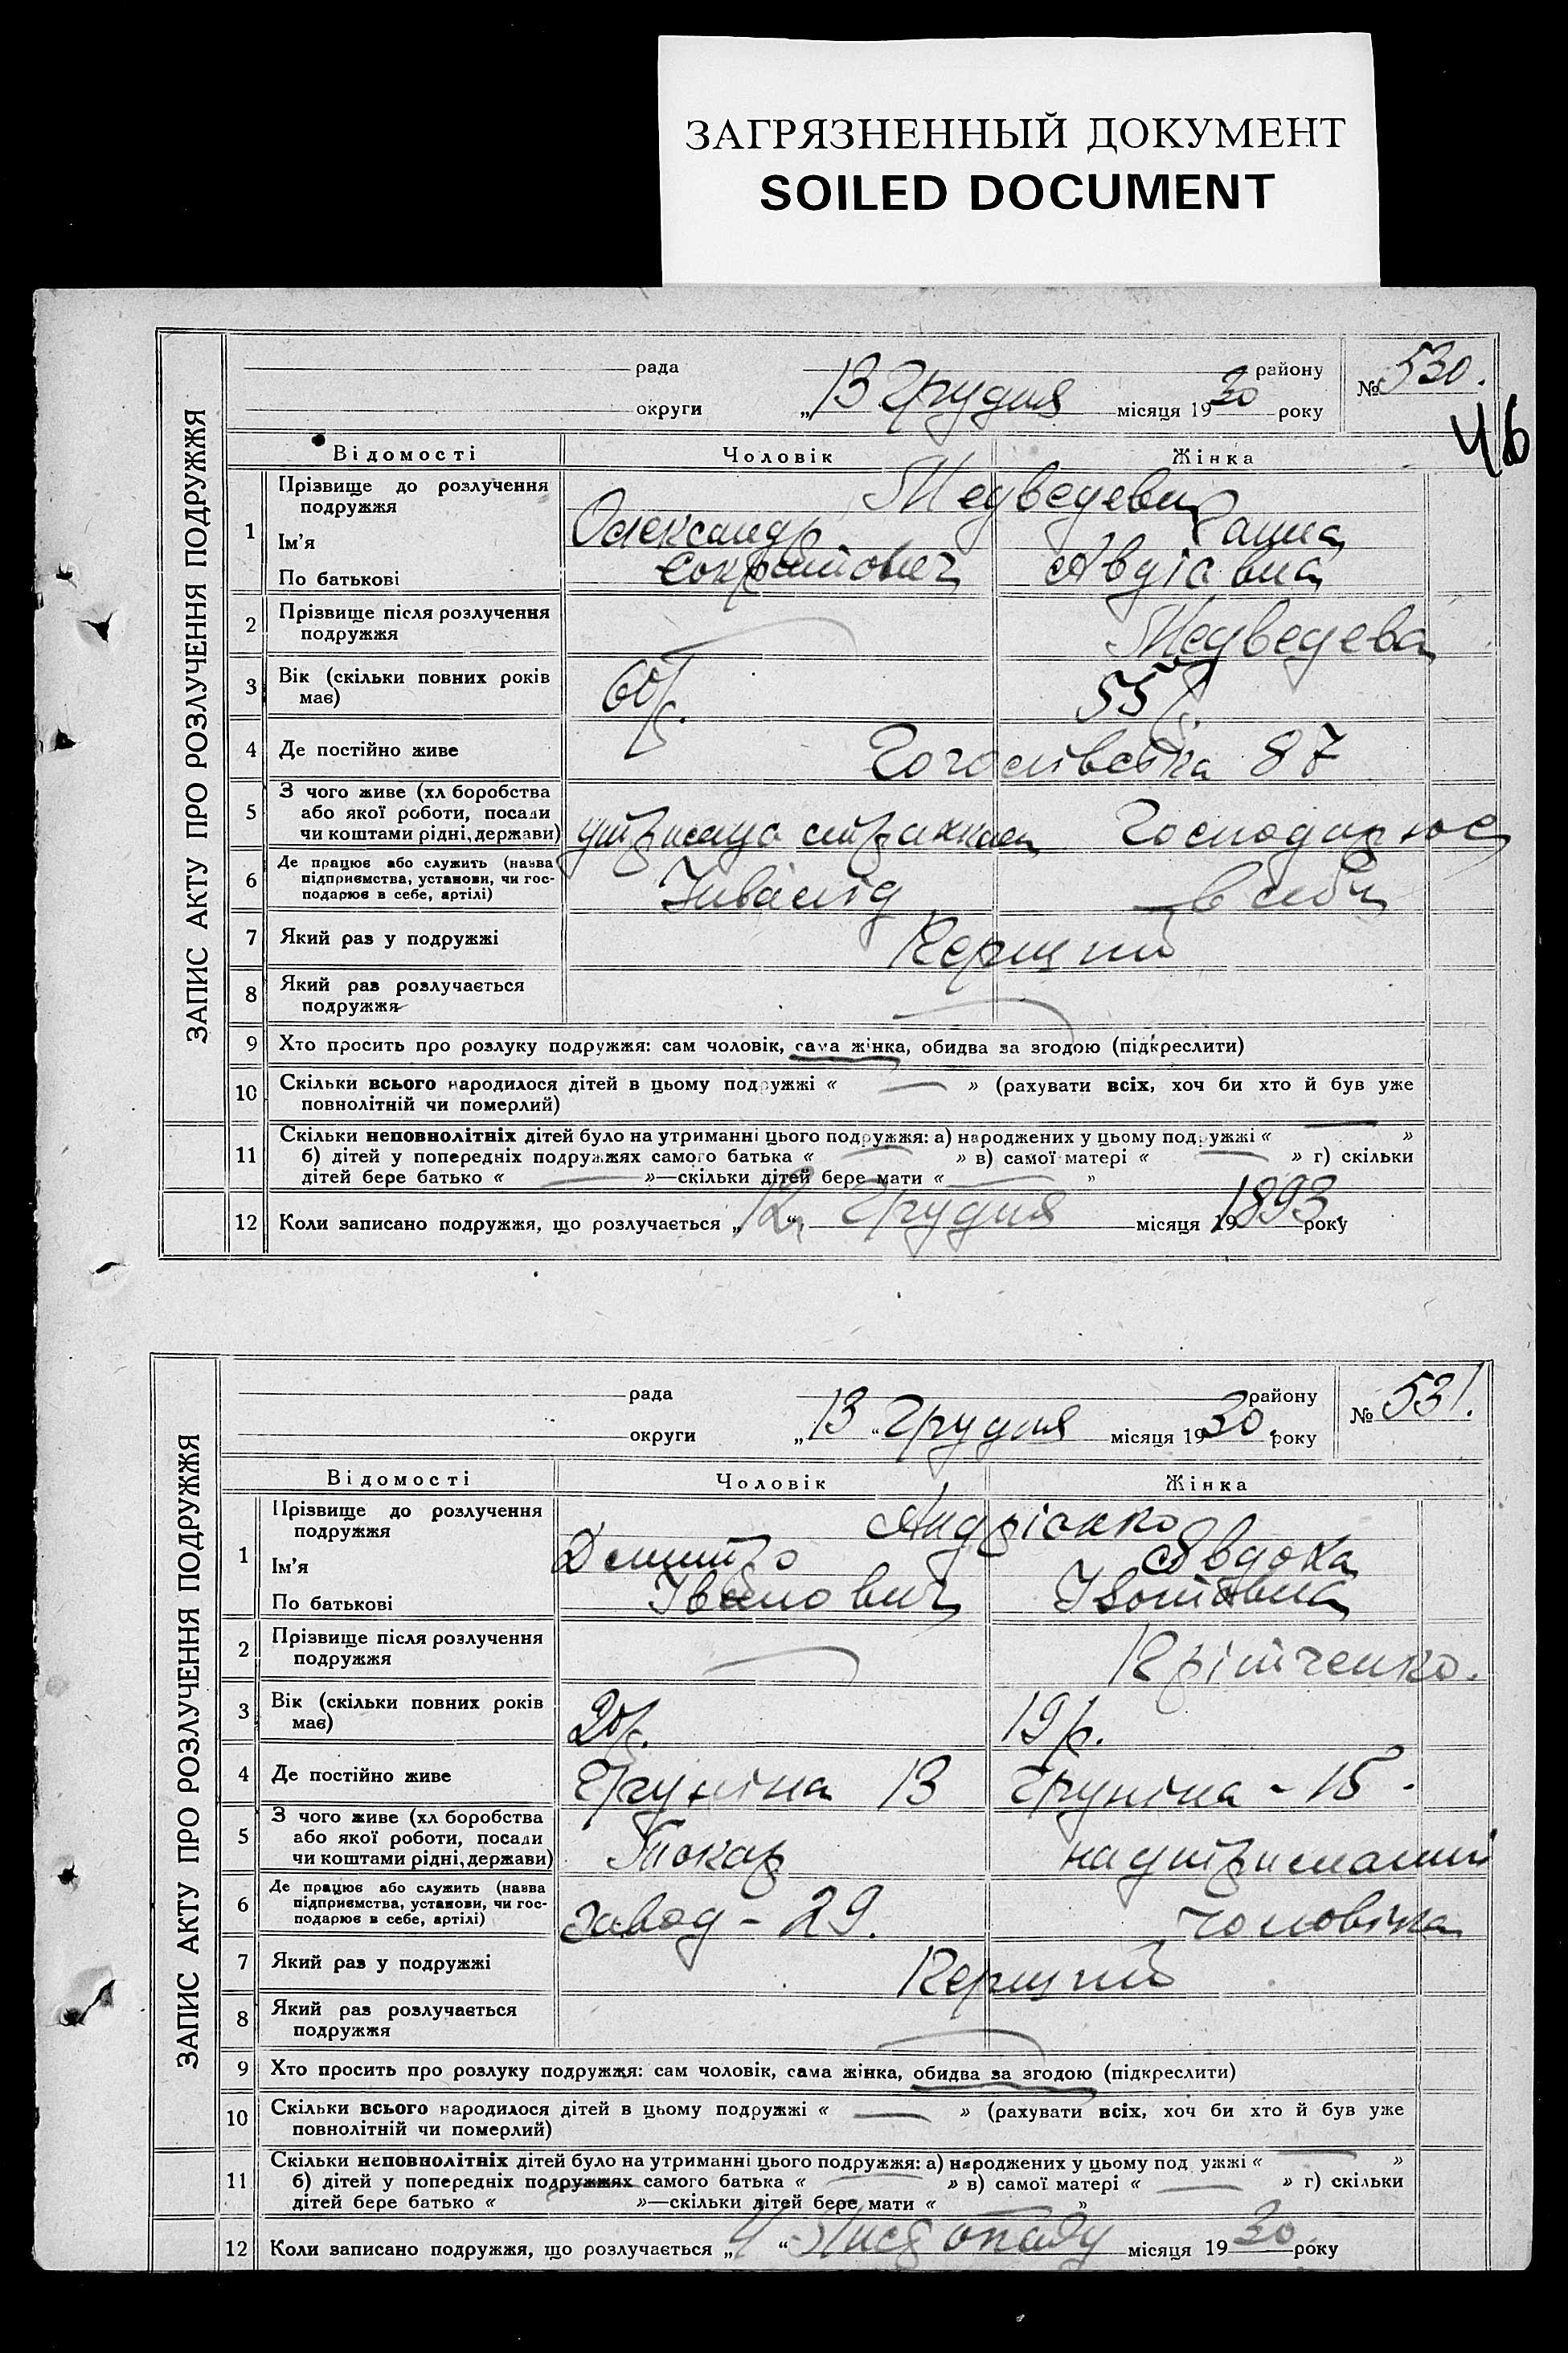 ЗАГРЯЗНЕННЫЙ ДОКУМЕНТ
SOILED DOCUMENT
ЗАПИС АКТУ ПРО РОЗЛУЧЕННЯ ПОДРУЖЖЯ
рада району № 530.
округи „13 Грудня місяця 1930 року
46
Відомості Чоловік Жінка
1 Прізвище до розлучення подружжя Медведеви
Ім'я Олександр Ганна
По батькові Сократович Авдіївна
2 Прізвище після розлучення
подружжя Медведева
3 Вік (скільки повних років
має) 60 р. 55 р.
4 Де постійно живе Гоголівська 87
5 З чого живе (хл боробства
або якої роботи, посади
чи коштами рідні, держави) Господарює
6 Де працює або служить (назва
підприємства, установи, чи гос-
подарює в себе, артілі) Інвалід в себе
7 Який раз у подружжі Перший
8 Який раз розлучається
подружжя
9 Хто просить про розлуку подружжя: сам чоловік, сама жінка, обидва за згодою (підкреслити)
10 Скільки всього народилося дітей в цьому подружжі « — » (рахувати всіх, хоч би хто й був уже
повнолітній чи померлий)
11 Скільки неповнолітніх дітей було на утриманні цього подружжя: а) народжених у цьому подружжі « — »
б) дітей у попередніх подружжях самого батька « — » в) самої матері « — » г) скільки
дітей бере батько « — »—скільки дітей бере мати « — »
12 Коли записано подружжя, що розлучається „12“ Грудня місяця 1893 року
ЗАПИС АКТУ ПРО РОЗЛУЧЕННЯ ПОДРУЖЖЯ
рада району № 531.
округи „13“ Грудня місяця 1930. року
Відомості Чоловік Жінка
1 Прізвище до розлучення
подружжя Андрієнко
Ім'я Дмитро Явдоха
По батькові Іванович
2 Прізвище після розлучення
подружжя
3 Вік (скільки повних років
має) 20 р. 19 р.
4 Де постійно живе Груніна 13 Груніна - 15.
5 З чого живе (хл боробства
або якої роботи, посади
чи коштами рідні, держави) Токар на утриманні
6 Де працює або служить (назва
підприємства, установи, чи гос-
подарює в себе, артілі) Завод - 29. чоловіка
7 Який раз у подружжі Перший
8 Який раз розлучається
подружжя
9 Хто просить про розлуку подружжя: сам чоловік, сама жінка, обидва за згодою (підкреслити)
10 Скільки всього народилося дітей в цьому подружжі « — » (рахувати всіх, хоч би хто й був уже
повнолітній чи померлий)
11 Скільки неповнолітніх дітей було на утриманні цього подружжя: а) народжених у цьому под ужжі « — »
б) дітей у попередніх подружжях самого батька « — » в) самої матері « — » г) скільки
дітей бере батько « »—скільки дітей бере мати « »
12 Коли записано подружжя, що розлучається „4“ Листопаду місяця 1930. року